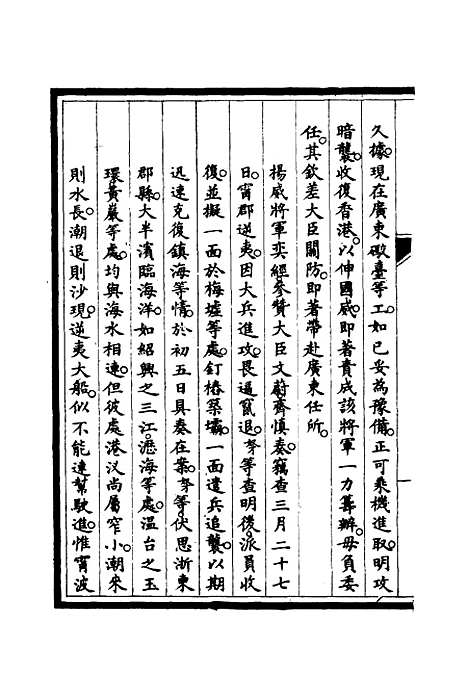 久據。現在廣東礮臺等工。如已妥為豫備。正可乘機進取。明攻
暗襲。收復香港。以伸國威。即著責成該將軍一力籌辦。毋負委
任。其欽差大臣關防。即著帶赴廣東任所。
揚威將軍奕經參贊大臣文蔚齊慎奏。竊查三月二十七
日。甯郡逆夷。因大兵進攻。畏逼竄退。孥等查明後。派員收
復。並擬一面於梅墟等處。釘樁築壩。一面遣兵追襲。以期
迅速克復鎮海等情。於初五日具奏在案。孥等伏思浙東
郡縣。大半濱臨海洋。如紹興之三江。瀝海等處。温台之玉
環黃巖等處。均與海水相連。但彼處港汊尚屬窄小。潮來
則水長。潮退則沙現。逆夷大船。似不能連幫駛進。惟甯波